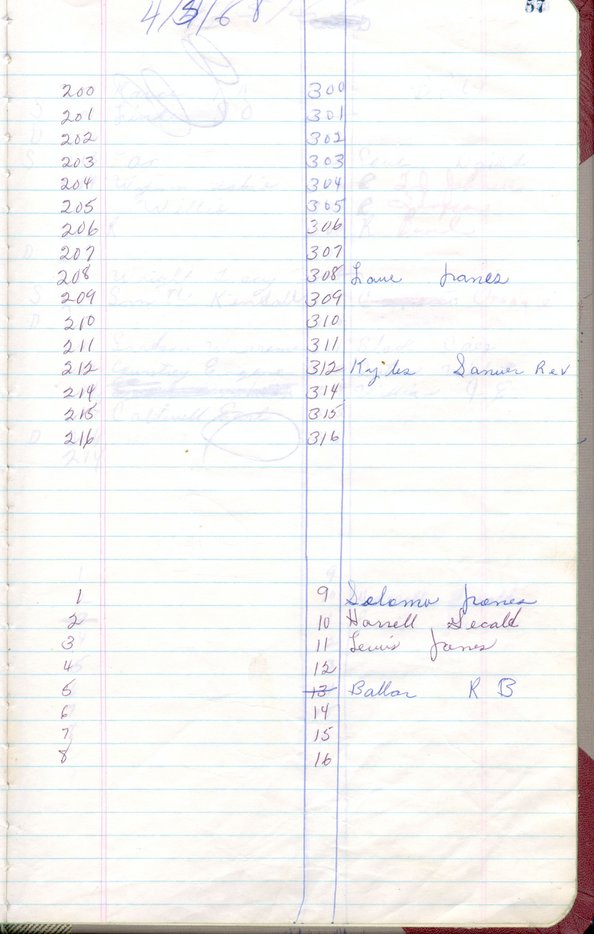 57
4/3/68
200 300
201 301
202 302
203 303
204 304
205 305
206 306
207 307
208 308 Lowe James
209 309
210 310
211 311
212 312 Kyles Samuer Rev
214 314
215 315
216 316
1 9 Solomo Jones
2 10 Harrell Gecald
3 11 Lewis James
4 12
5 13 Ballar R B
6 14
7 15
8 16